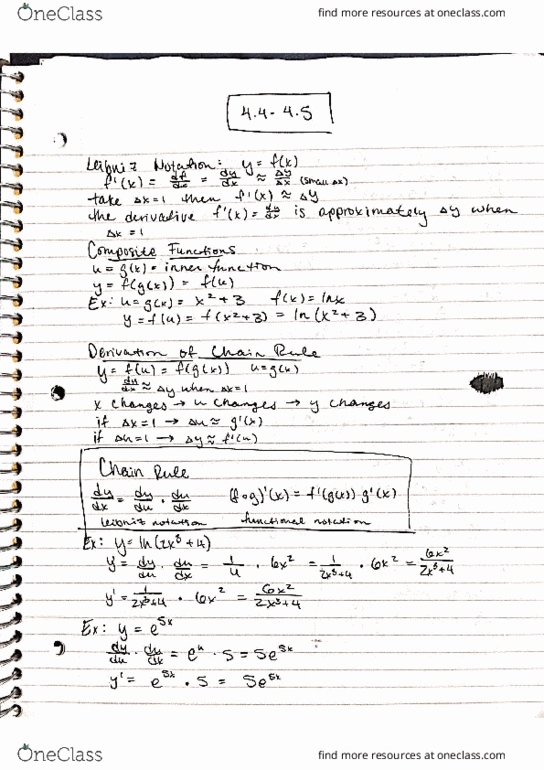 OneClass
find more resources at oneclass.com
4.4 - 4.5
Leibniz Notation: y = f(x)
f'(x) = df/dx = dy/dx ≈ Δy/Δx (small Δx)
take Δx=1 then f'(x) ≈ Δy
the derivative f'(x) = dy/dx is approximately Δy when
Δx = 1
Composite Functions
u = g(x) = inner function
y = f(g(x)) = f(u)
Ex: u = g(x) = x² + 3 f(x) = lnx
y = f(u) = f(x²+3) = ln(x²+3)
Derivation of Chain Rule
y = f(u) = f(g(x)) u = g(x)
dy/dx ≈ Δy when Δx=1
x changes → u changes → y changes
if Δx = 1 → Δu ≈ g'(x)
if Δu = 1 → Δy ≈ f'(u)
Chain Rule
dy/dx = dy/du · du/dx (f∘g)'(x) = f'(g(x)) g'(x)
leibniz notation functional notation
Ex: y = ln(2x³+4)
y' = dy/du · du/dx = 1/u · 6x² = 1/2x³+4 · 6x² = 6x²/2x³+4
y' = 1/2x³+4 · 6x² = 6x²/2x³+4
Ex: y = e^5x
dy/du · du/dx = e^u · 5 = 5e^5x
y' = e^5x · 5 = 5e^5x
OneClass
find more resources at oneclass.com